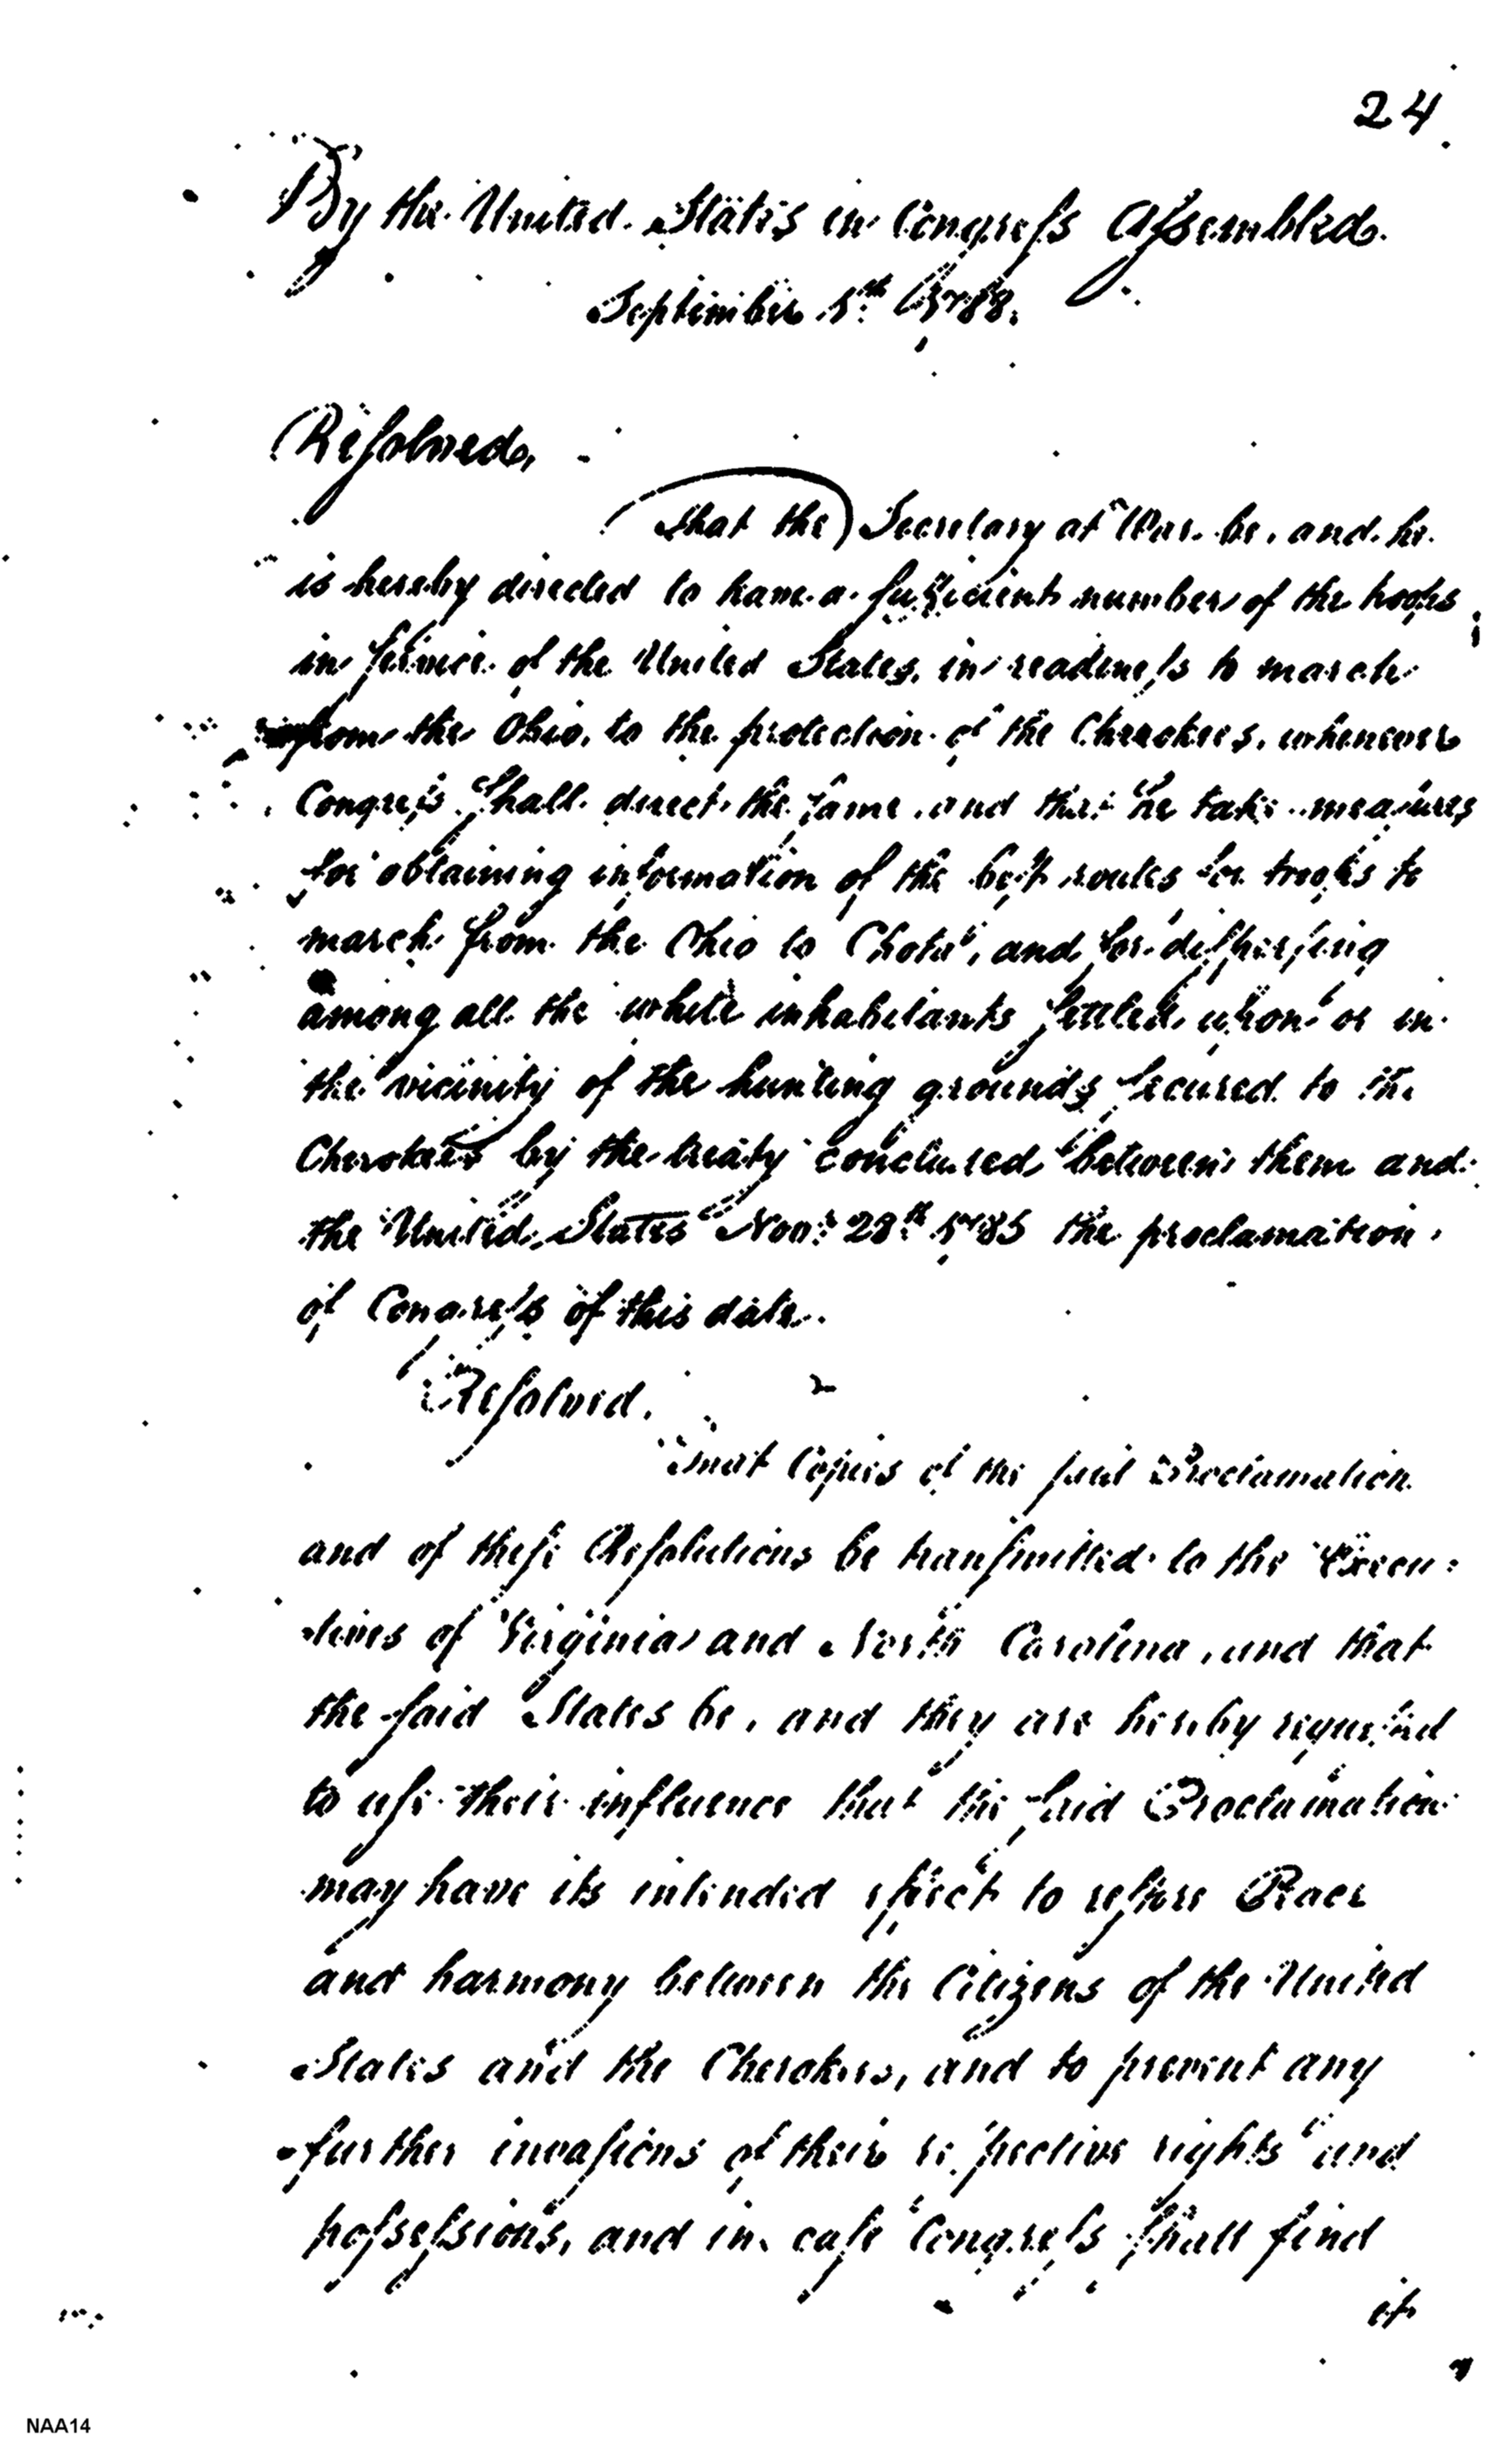 24
By the United States in Congress Assembled.
September 1st 1788.
Resolved,
that the Secretary at War be, and he
is hereby directed to have a sufficient number of the troops
in service of the United States, in readiness to march
from the Ohio, to the protection of the Cherokees, whenever
Congress shall direct the same, and that he take measures
for obtaining information of the best routes for troops to
march from the Ohio to Chota, and for dispersing
among all the white inhabitants settled upon or in
the vicinity of the hunting grounds secured to the
Cherokees by the treaty concluded between them and
the United States Novr 28th 1785 the proclamation
of Congress of this date.
Resolved.
That Copies of the said Proclamation
and of these Resolutions be transmitted to the Execu=
-tives of Virginia and North Carolina, and that
the said States be, and they are hereby requested
to use their influence that the said Proclamation
may have its intended effect to restore Peace
and harmony between the Citizens of the United
States and the Cherokees, and to prevent any
further invasions of their respective rights and
possessions, and in case Congress shall find
it
NAA14